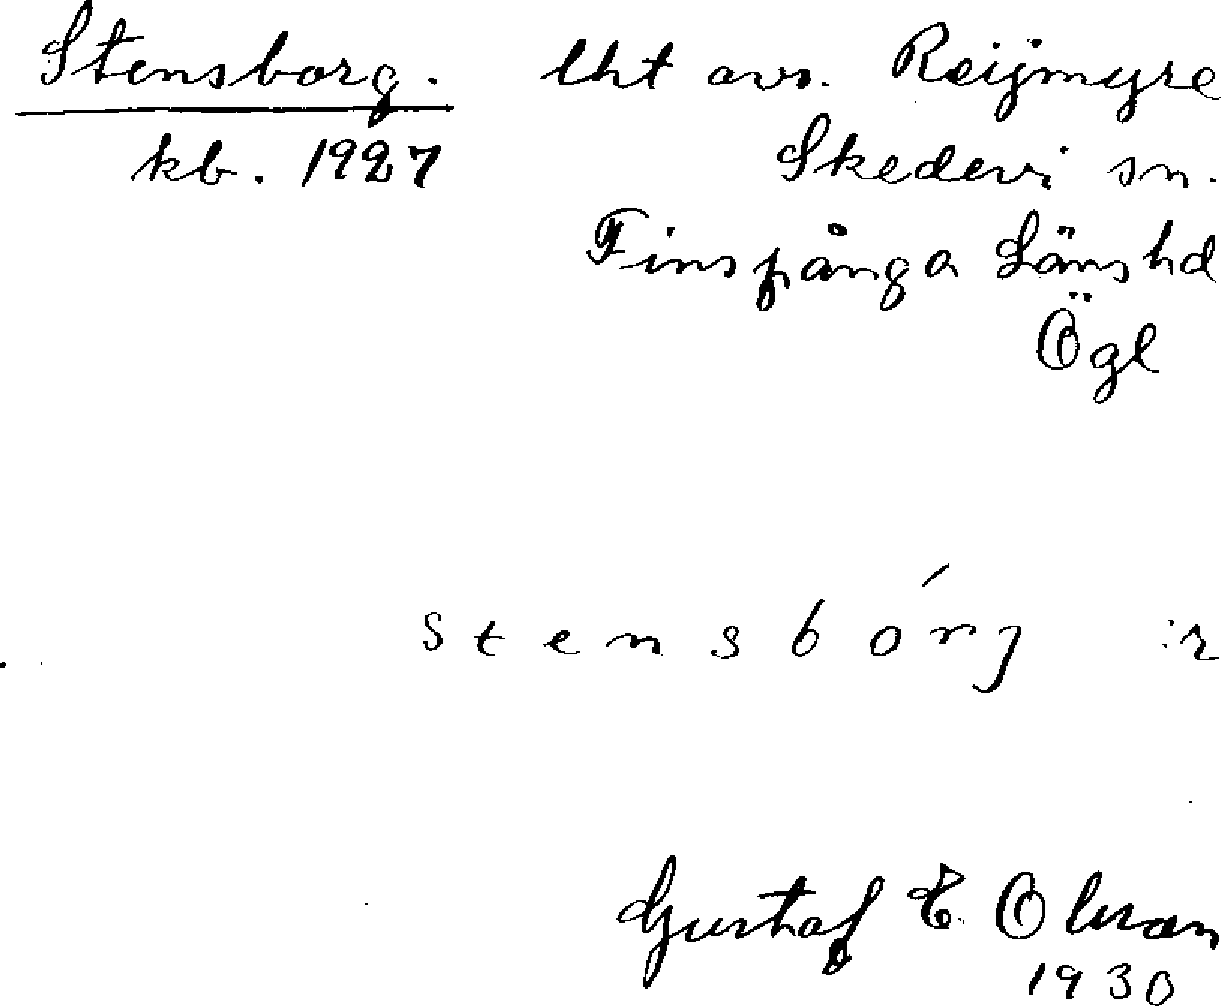 Stensborg. lht avs. Reijmyre
kb. 1927 Skedevi sn.
Finspånga Länshd
Ögl
stensbórj :r
Gustaf E. Olsson
1930